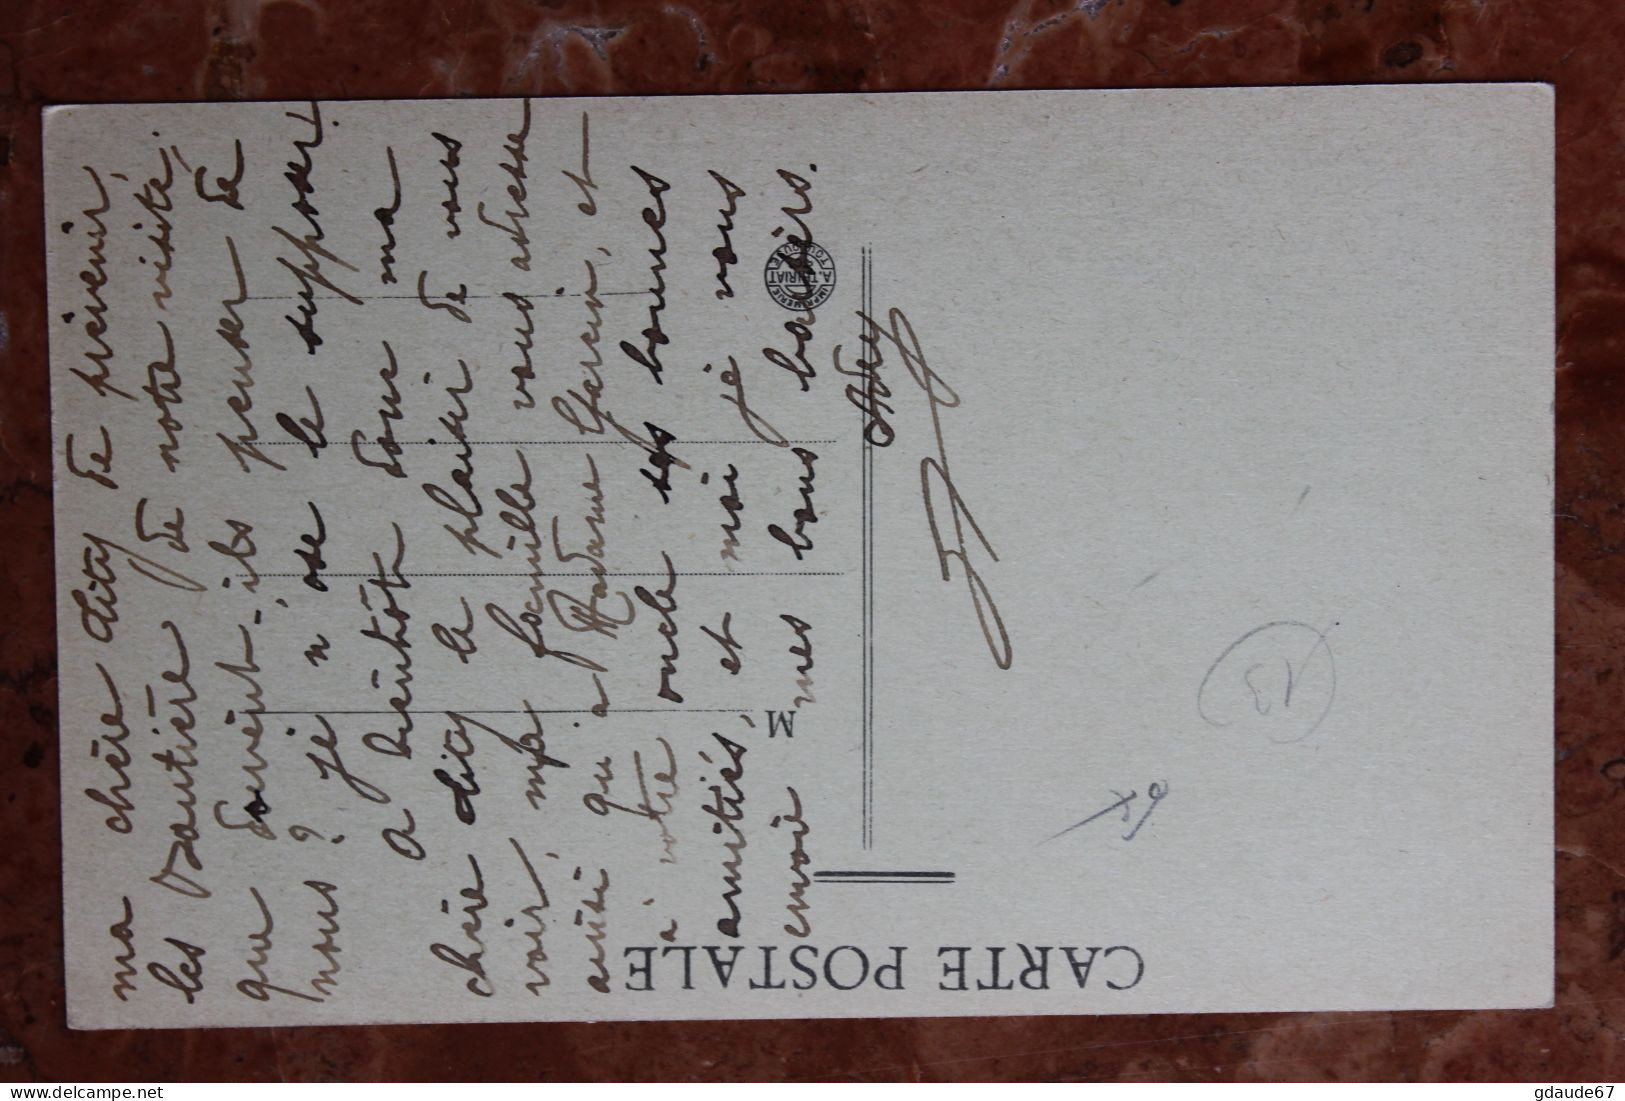 ma chère Lity de prévenir,
les Dautière de notre visite,
que doivent-ils penser de
nous ? je n'ose le supposer !
A bientôt donc ma
chère Lity le plaisir de vous
voir, ma famille vous adresse
ainsi qu'a Madame Garcin, et
à votre oncle ses bonnes
amitiés, et moi je vous
envoie mes bons baisers.
CARTE POSTALE
M
IMPRIMERIE A. THIRIAT TOULOUSE
13
delcampe.net
gdaude67